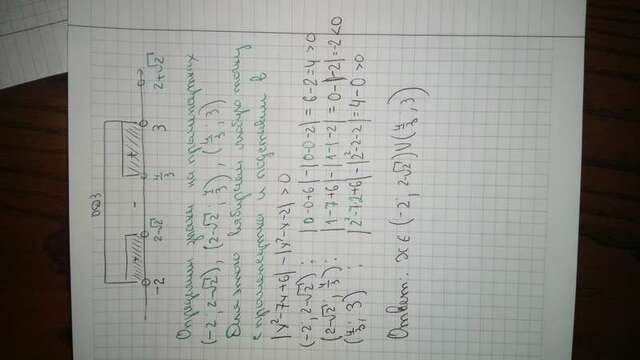 ОДЗ
+ - +
-2 2-√2 4/3 3 2+√2
Определим знаки на промежутках
(-2, 2-√2), (2-√2; 4/3), (4/3; 3)
Для этого выбираем любую точку
с промежутка и подставим в
|x²-7x+6|-|x²-x-2|>0
(-2; 2-√2): |0-0+6|-|0-0-2|=6-2=4>0
(2-√2; 4/3): |1-7+6|-|1-1-2|=0-|-2|=-2<0
(4/3; 3): |2²-7·2+6|-|2²-2-2|=4-0>0
Ответ: x∈(-2; 2-√2)∪(4/3; 3)